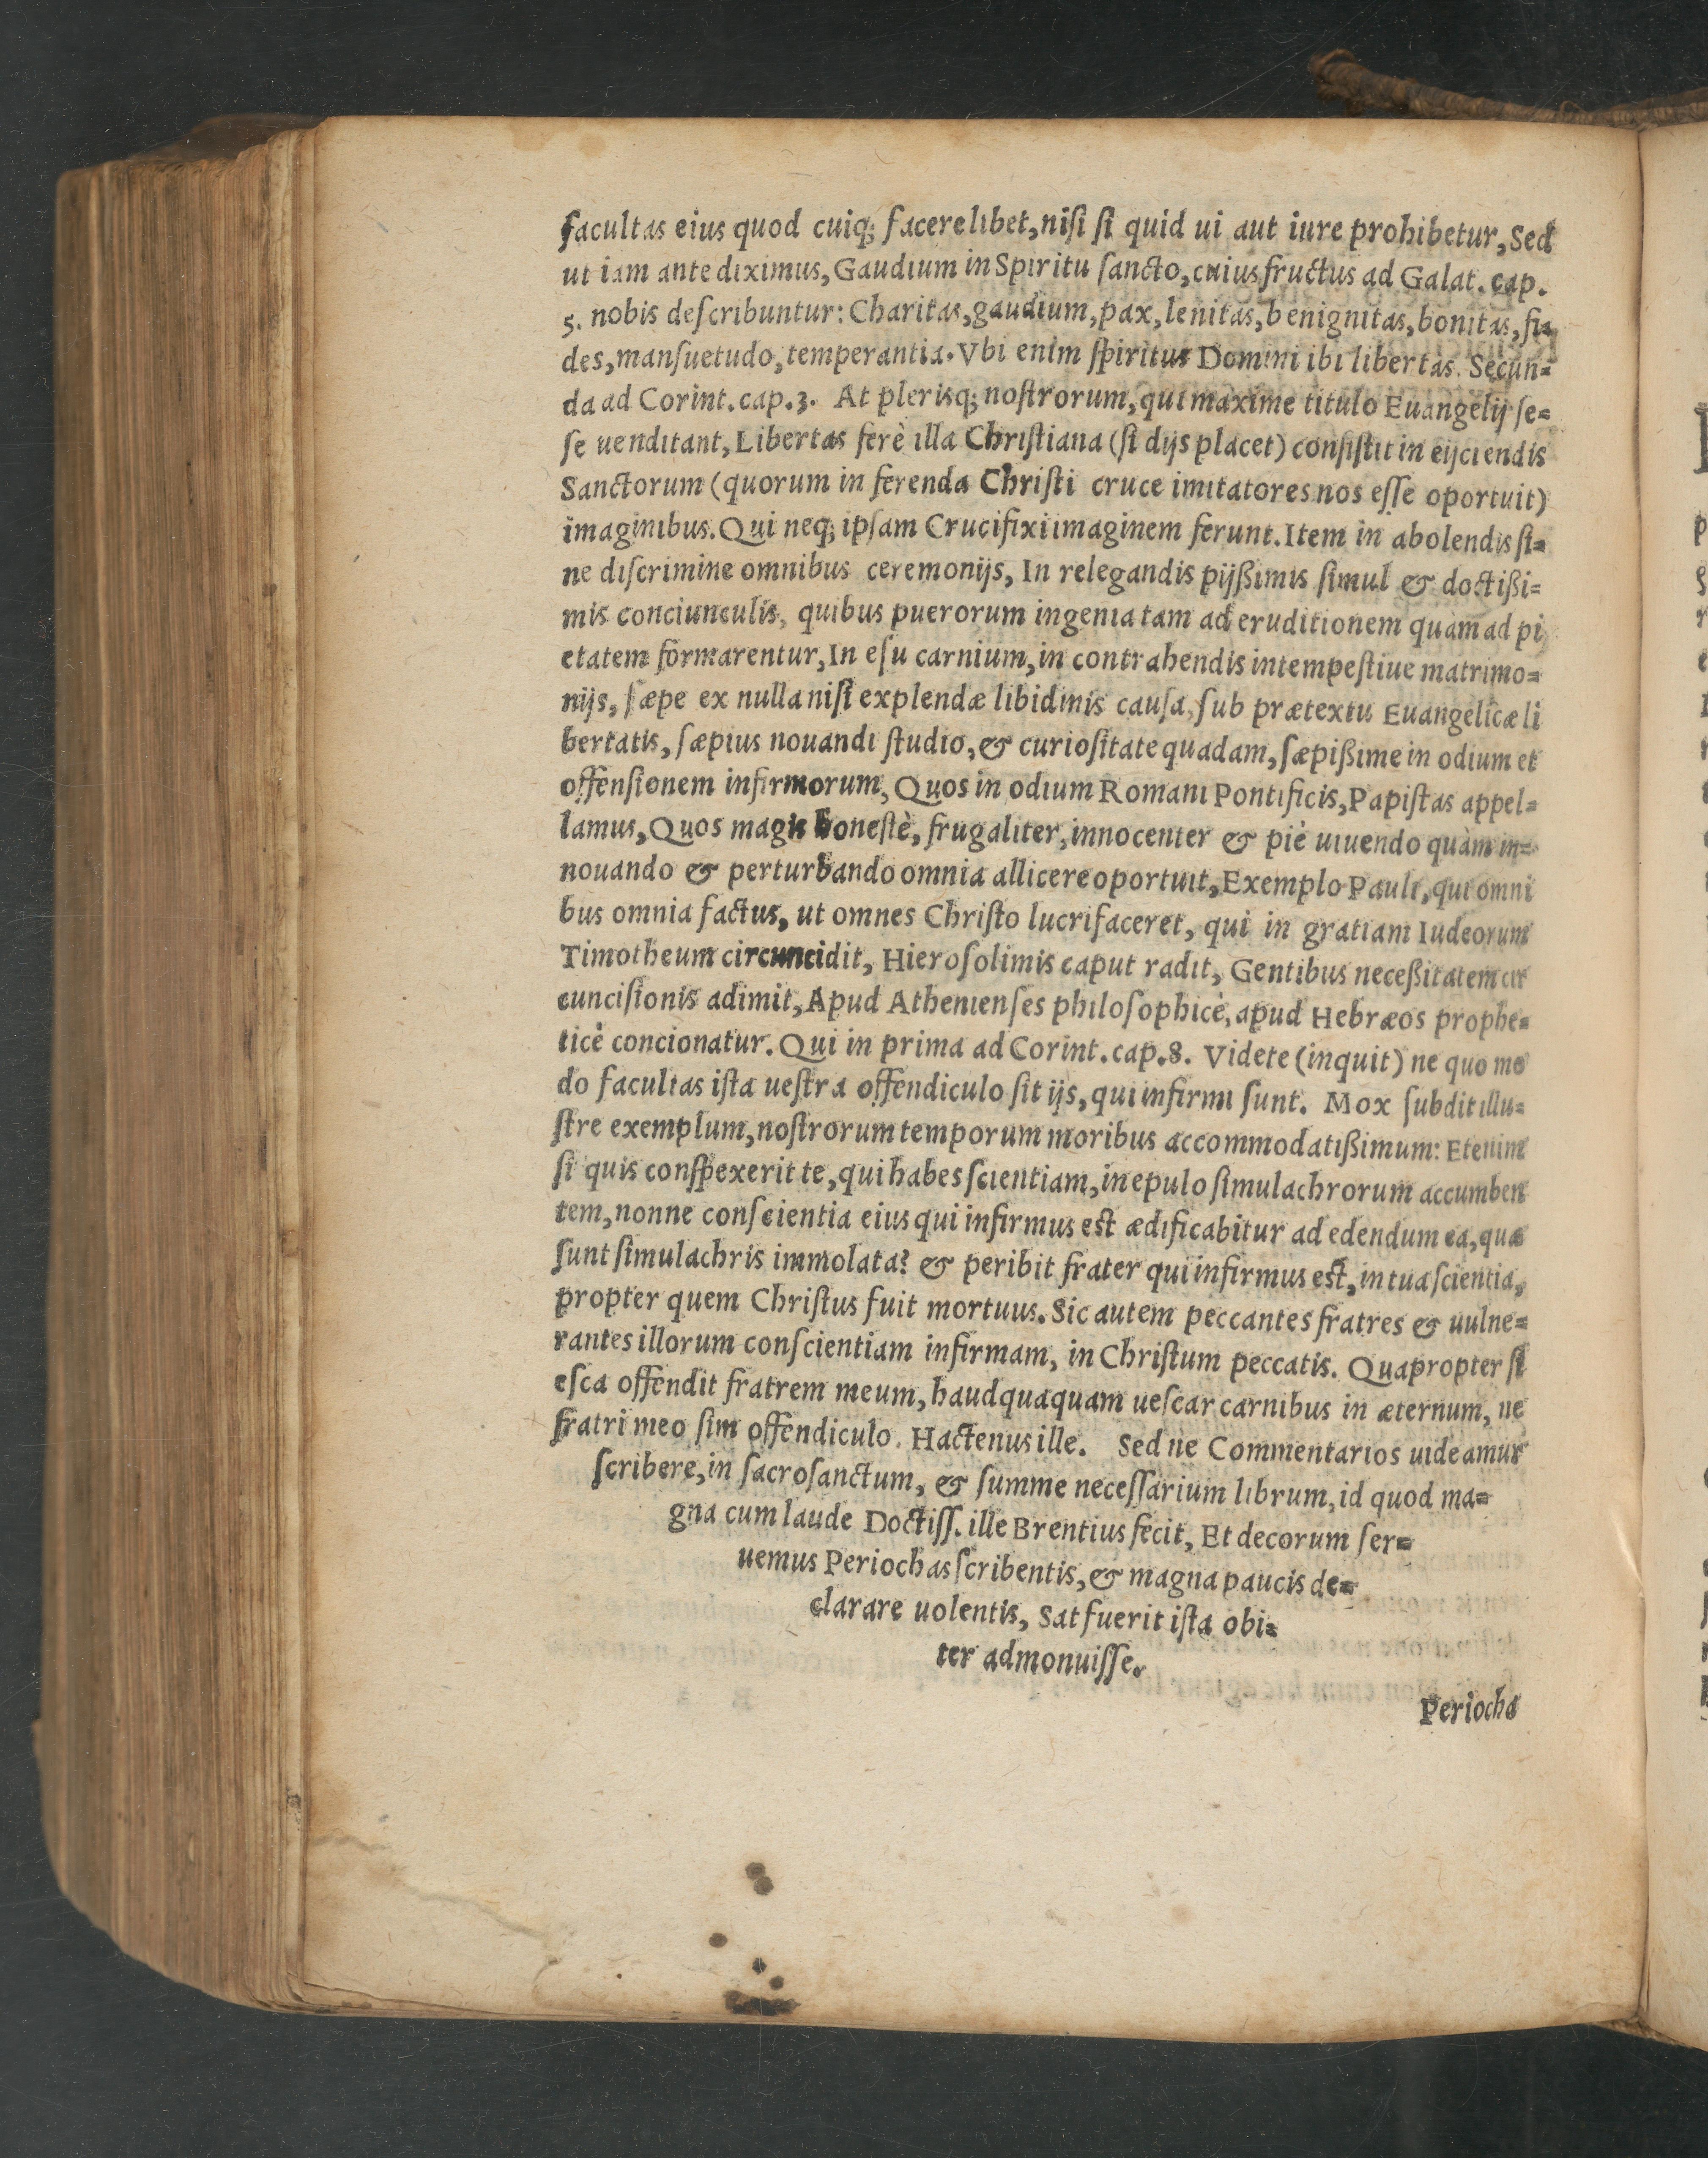 facultas eius quod cuiq; facere libet, niſi ſi quid ui aut iure prohibetur, Sed
ut iam ante diximus, Gaudium in Spiritu ſancto, cuius fructus ad Galat. cap.
5. nobis deſcribuntur: Charitas, gaudium, pax, lenitas, benignitas, bonitas, fi-
des, manſuetudo, temperantia. Vbi enim ſpiritus Domini ibi libertas. Secun=
da ad Corint. cap. 3. At plerisq; noſtrorum, qui maxime titulo Euangelij ſe=
ſe uenditant, Libertas ferè illa Chriſtiana (ſi dijs placet) conſiſtit in eijciendis
Sanctorum (quorum in ferenda Chriſti cruce imitatores nos eſſe oportuit)
imaginibus. Qui neq; ipſam Crucifixi imaginem ferunt. Item in abolendis ſi=
ne diſcrimine omnibus ceremonijs, In relegandis pijßimis ſimul & doctißi=
mis conciunculis, quibus puerorum ingenia tam ad eruditionem quàm ad pi
etatem formarentur, In eſu carnium, in contrahendis intempeſtiue matrimo=
nijs, ſæpe ex nulla niſi explendæ libidinis cauſa, ſub prætextu Euangelicæ li
bertatis, ſæpius nouandi ſtudio, & curioſitate quadam, ſæpißime in odium et
offenſionem infirmorum, Quos in odium Romani Pontificis, Papiſtas appel=
lamus, Quos magis honeſtè, frugaliter, innocenter & piè uiuendo quàm in=
nouando & perturbando omnia allicere oportuit, Exemplo Pauli, qui omni
bus omnia factus, ut omnes Chriſto lucrifaceret, qui in gratiam Iudeorum
Timotheum circuncidit, Hieroſolimis caput radit, Gentibus neceßitatem cir
cunciſionis adimit, Apud Athenienſes philoſophicè, apud Hebræos prophe=
ticè concionatur. Qui in prima ad Corint. cap. 8. Videte (inquit) ne quo mo
do facultas iſta ueſtra offendiculo ſit ijs, qui infirmi ſunt. Mox ſubdit illu=
ſtre exemplum, noſtrorum temporum moribus accommodatißimum: Etenim
ſi quis conſpexerit te, qui habes ſcientiam, in epulo ſimulachrorum accumben
tem, nonne conſcientia eius qui infirmus eſt ædificabitur ad edendum ea, quæ
ſunt ſimulachris immolata? & peribit frater qui infirmus eſt, in tua ſcientia,
propter quem Chriſtus fuit mortuus. Sic autem peccantes fratres & uulne=
rantes illorum conſcientiam infirmam, in Chriſtum peccatis. Quapropter ſi
eſca offendit fratrem meum, haudquaquam ueſcar carnibus in æternum, ne
fratri meo ſim offendiculo. Hactenus ille. Sed ne Commentarios uideamur
ſcribere, in ſacroſanctum, & ſumme neceſſarium librum, id quod ma=
gna cum laude Doctiſſ. ille Brentius fecit, Et decorum ſer=
uemus Periochas ſcribentis, & magna paucis de=
clarare uolentis, Sat fuerit iſta obi=
ter admonuiſſe.
Periocha